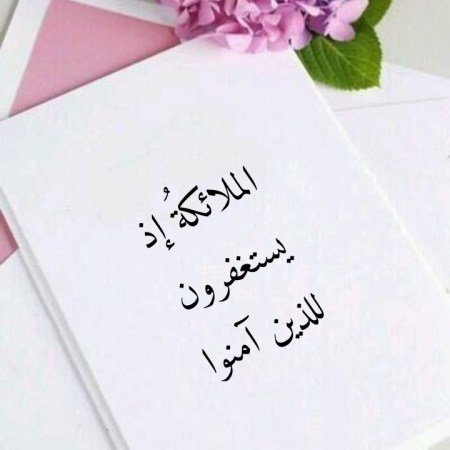 الملائكةُ إذ
يستغفرون
للذين آمنوا